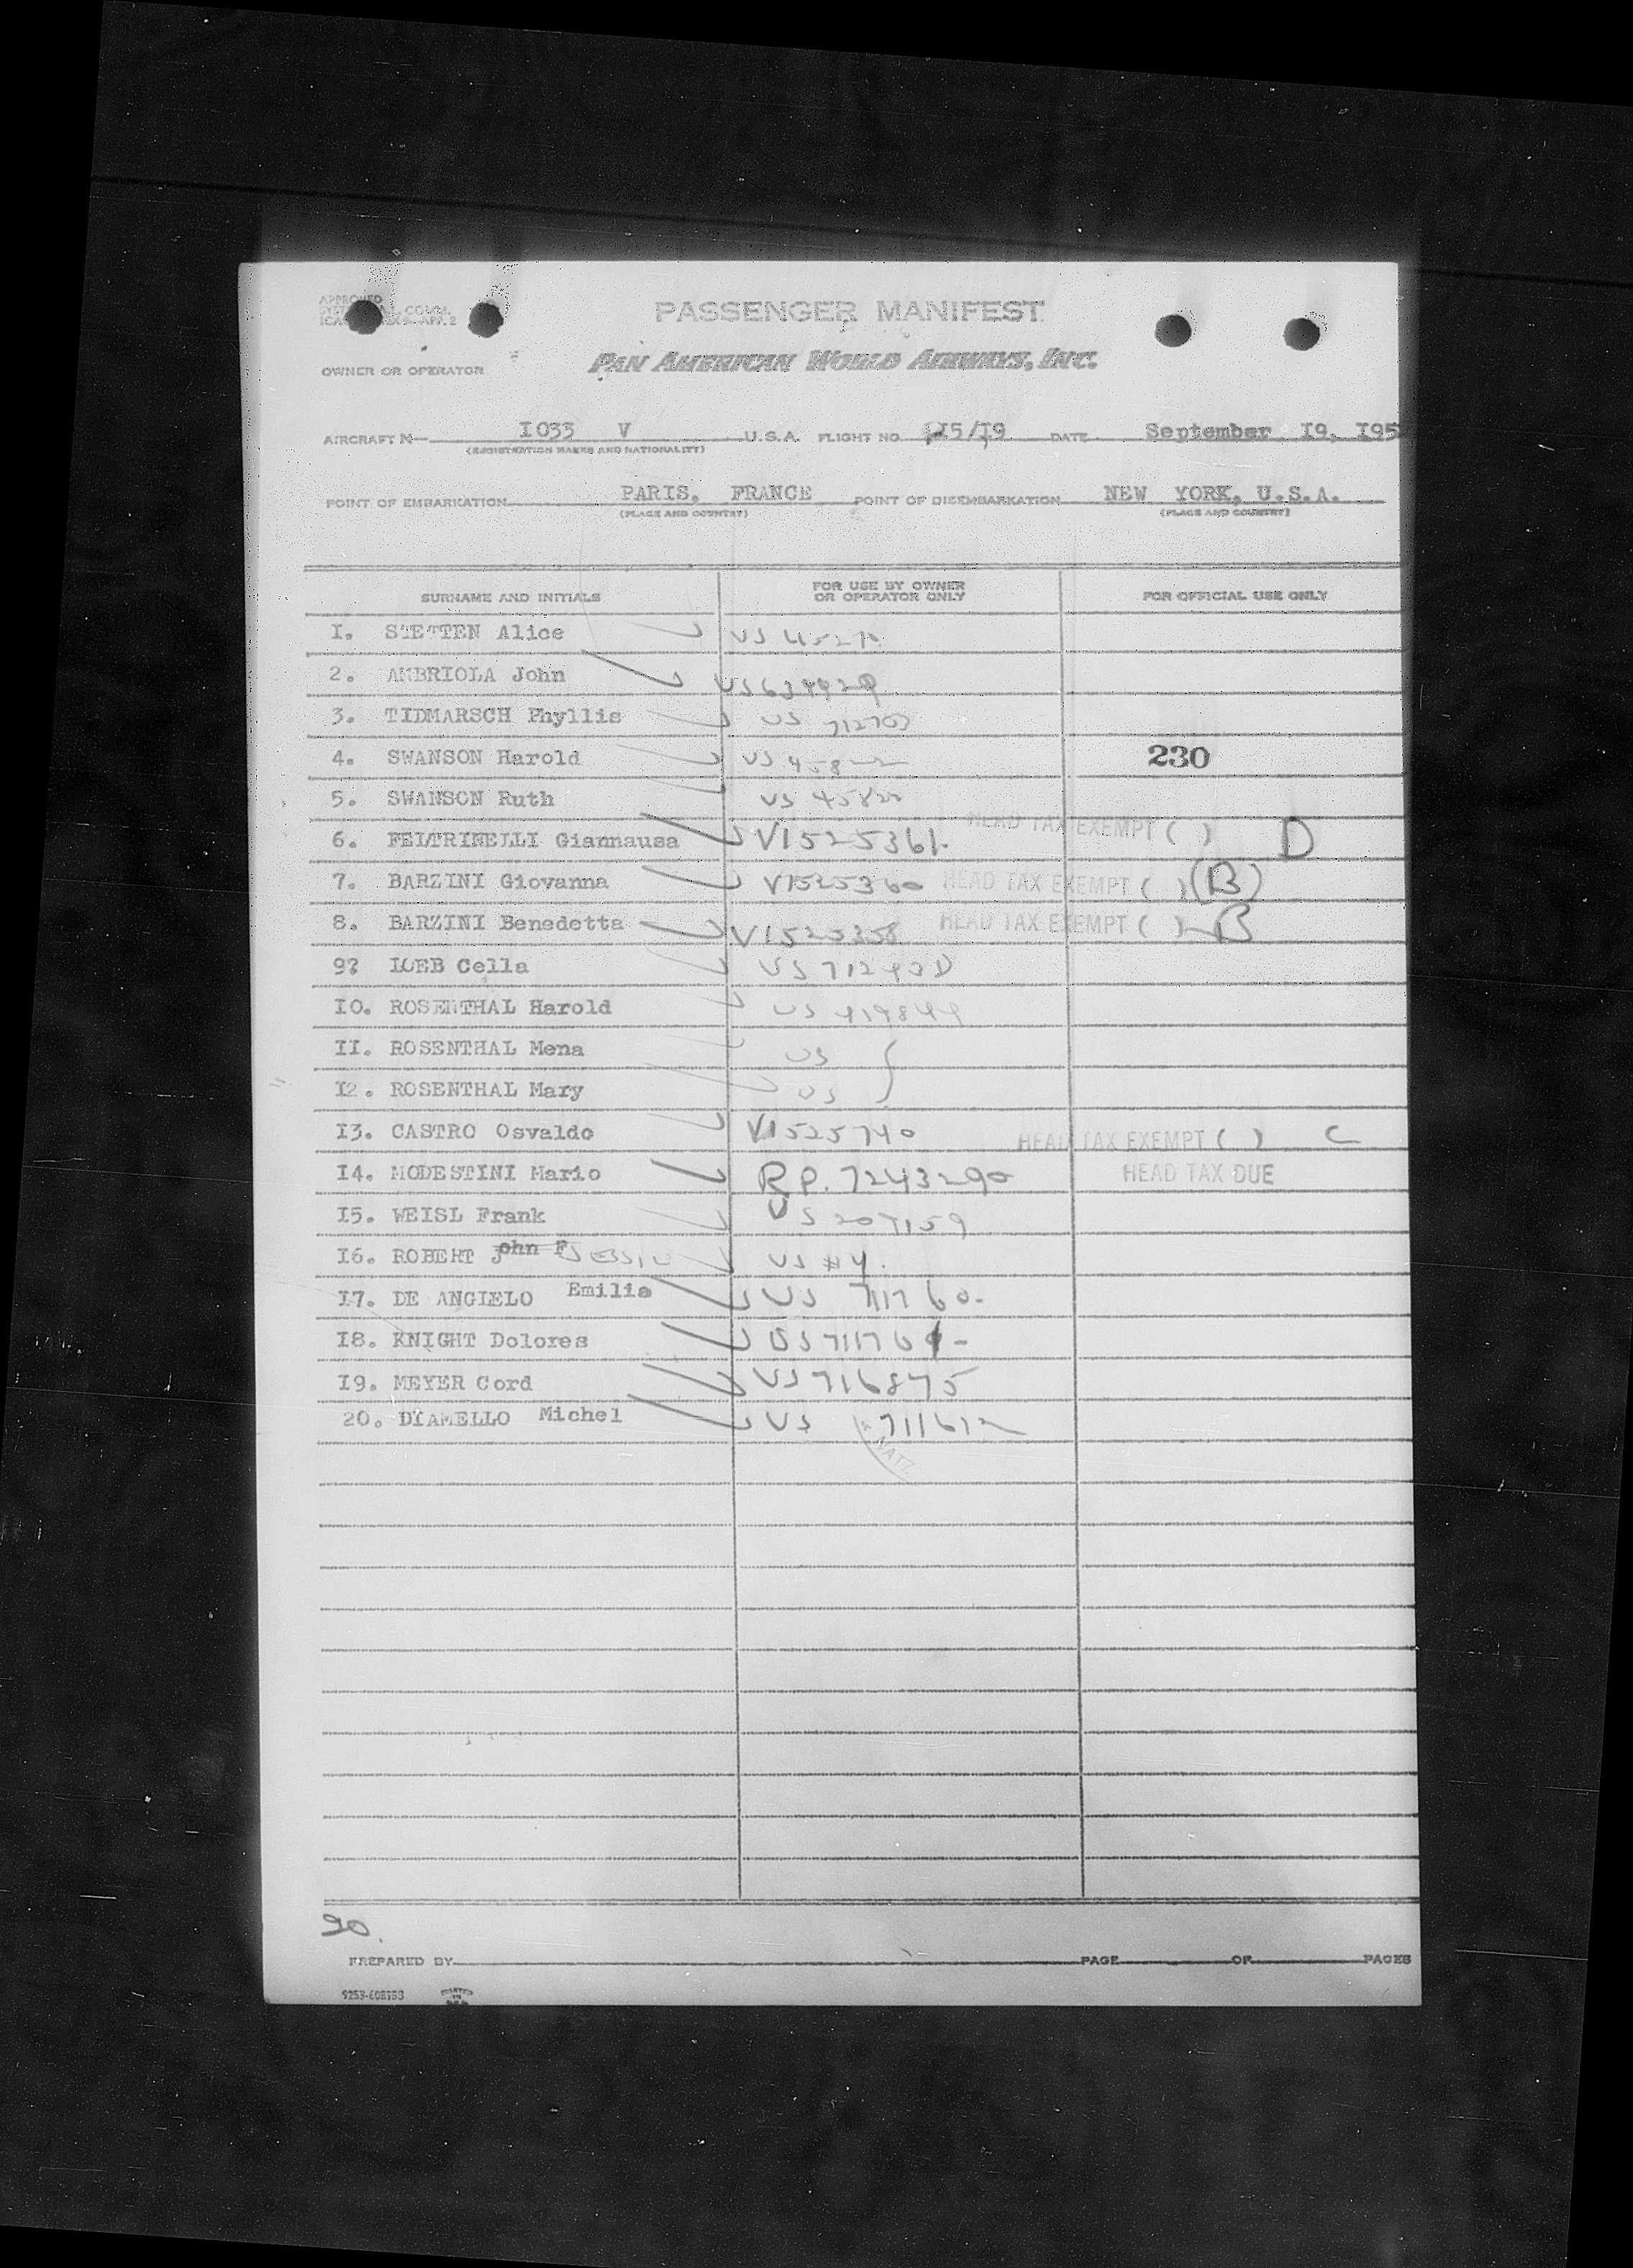 APPROVED
PASSENGER MANIFEST
PAN AMERICAN WORLD AIRWAYS, INC.
OWNER OR OPERATOR
AIRCRAFT N— I033 V U.S.A. FLIGHT NO. II5/I9 DATE September I9, I95
(REGISTRATION MARKS AND NATIONALITY)
POINT OF EMBARKATION PARIS, FRANCE POINT OF DISEMBARKATION NEW YORK, U.S.A.
(PLACE AND COUNTRY) (PLACE AND COUNTRY)
SURNAME AND INITIALS FOR USE BY OWNER OR OPERATOR ONLY FOR OFFICIAL USE ONLY
I. STETTEN Alice US
2. AMBRIOLA John
3. TIDMARSCH Phyllis US
4. SWANSON Harold US 230
5. SWANSON Ruth US
6. FELTRINELLI Giannausa V1525361. HEAD TAX EXEMPT ( ) D
7. BARZINI Giovanna V1525360 HEAD TAX EXEMPT ( ) (B)
8. BARZINI Benedetta V1525358 HEAD TAX EXEMPT ( ) B
9? LOEB Cella US
I0. ROSENTHAL Harold US
II. ROSENTHAL Mena US
I2. ROSENTHAL Mary US
I3. CASTRO Osvaldo V1525740 HEAD TAX EXEMPT ( ) C
I4. MODESTINI Mario RP. 7243290 HEAD TAX DUE
I5. WEISL Frank US 207159
I6. ROBERT John F US #4.
I7. DE ANGIELO Emilia US 711760-
I8. KNIGHT Dolores US
I9. MEYER Cord US716875
20. DIAMELLO Michel US 711612
20.
PREPARED BY PAGE OF PAGES
PRINTED IN